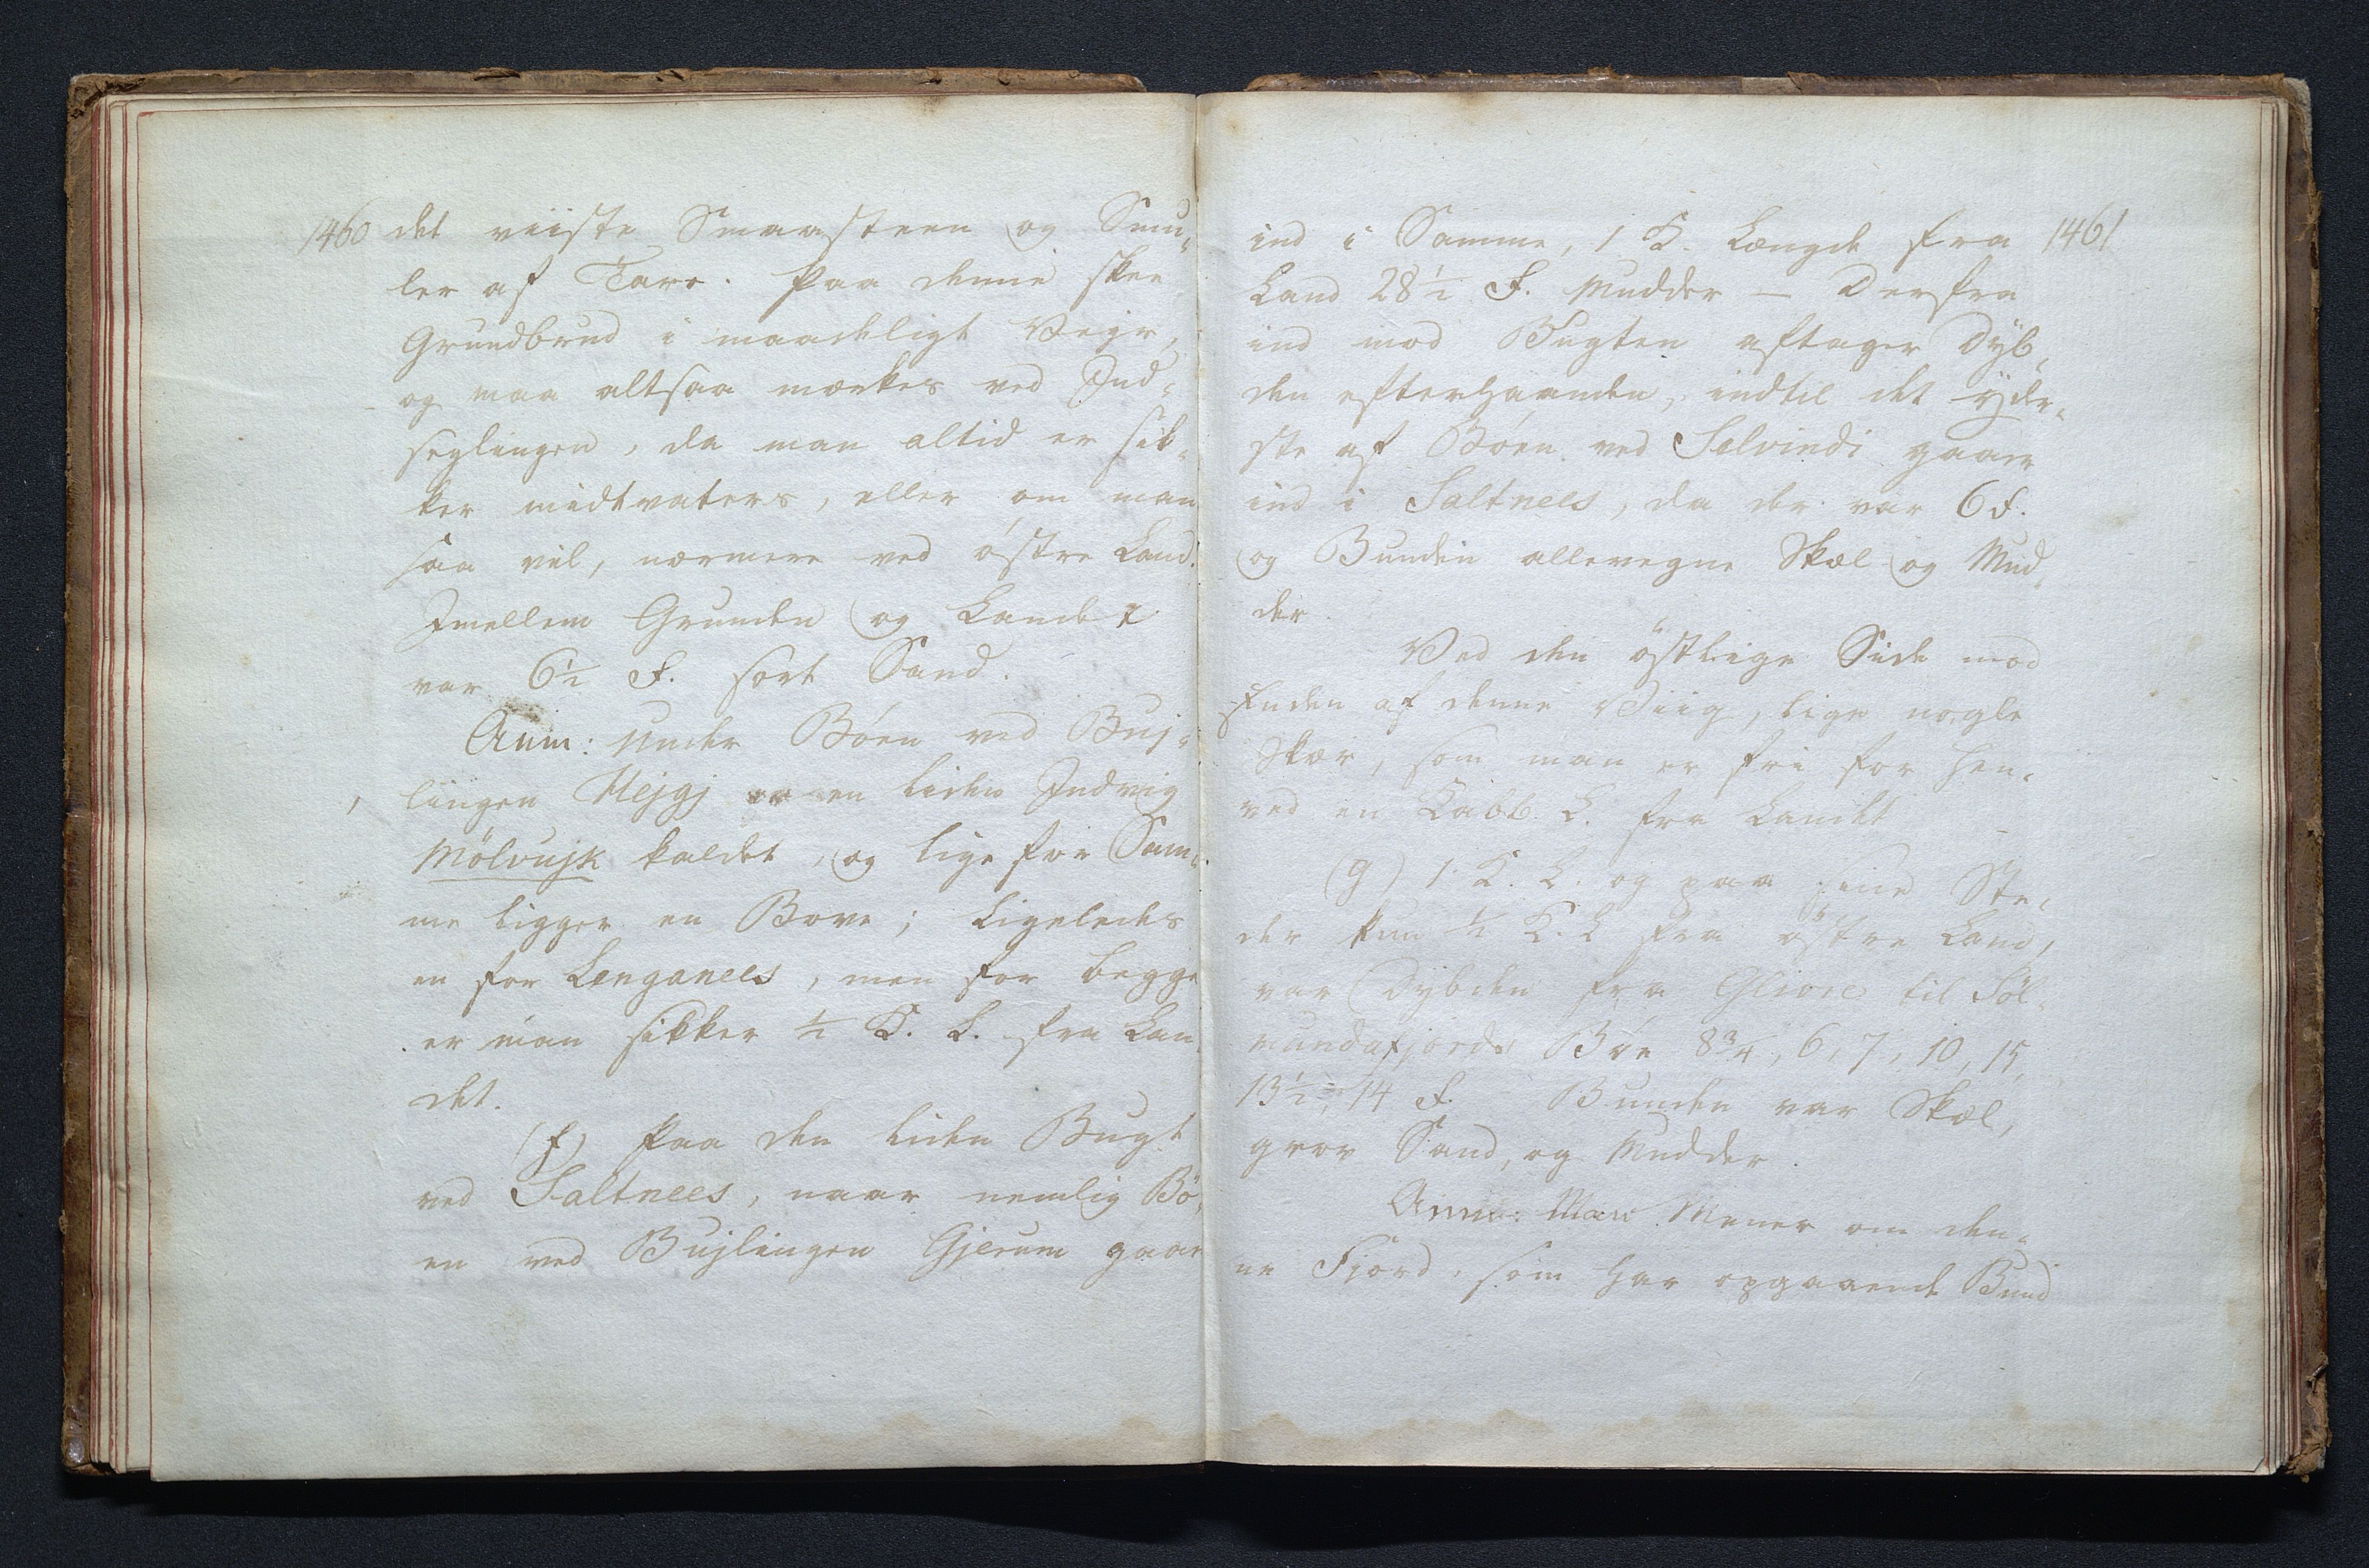 1460
det viiste Smaasteen og Smu-
ler af Tare. Paa denne skee
Grundbrud i maadeligt Vejr,
og maa altsaa mærkes ved Ind-
seglingen, da man altid er sik-
ker midtvaters, eller om man
saa vil, nærmere ved østre Land.
Imellem Grunden og Landet
var 6½ F. sort Sand.
Anm: Under Böen ved Buj-
lingen Hejgj er en liden Indvig
Mölvujk kaldet, og lige for Sam-
me ligger en Bove; ligeledes
en for Lenganees, men for begge
er man sikker ½ K. L. fra Lan
det.
(f) Paa den liden Bugt
ved Saltnees, naar nemlig Bö-
en ved Bujlingen Gjerum gaar
1461
ind i Samme, 1 K. Længde fra
Land 28½ F. Mudder — Derfra
ind mod Bugten aftager Dyb-
den efterhaanden, indtil det yder-
ste af Böen ved Selvindi gaar
ind i Saltnees, da der var 6 F.
og Bunden allevegne Skæl og Mud-
der.
Ved den östlige Side mod
Enden af denne Viig, lige nogle
Skær, som man er fri for hen-
ved en Kabb. L. fra Landet
(g) 1 K. L. og paa sine Ste-
der kun ½ K. L fra östre Land,
var Dybden fra Gliore til Söl-
mundafjords Böe 8¾, 6, 7, 10, 15,
13½, 14 F. Bunden var Skæl,
grov Sand, og Mudder.
Anm: Man Mener om den-
ne Fjord, som har opgaaende Bund